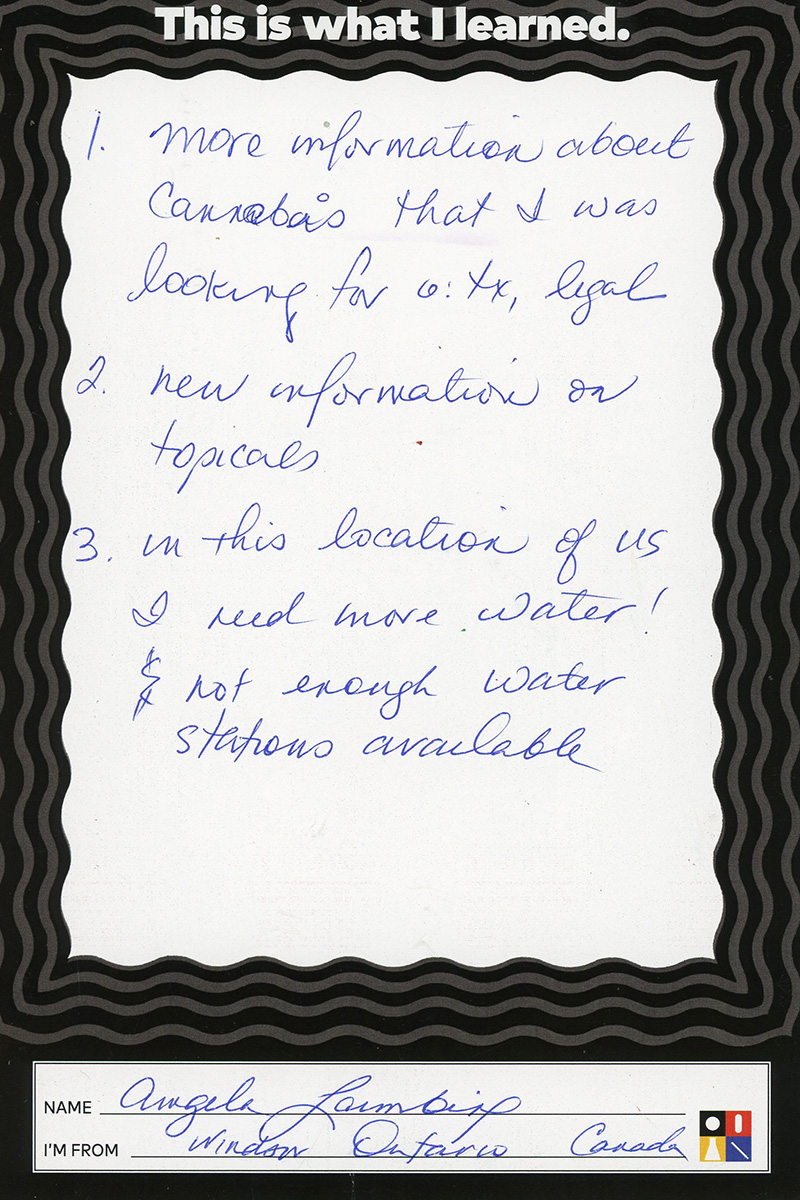 This is what I learned.
1. more information about
Cannabais that I was
looking for o: tx, legal
2. new information on
topicals
3. in this location of US
I need more water!
& not enough water
stations available
NAME Angela
I'M FROM Windsor Ontario Canada